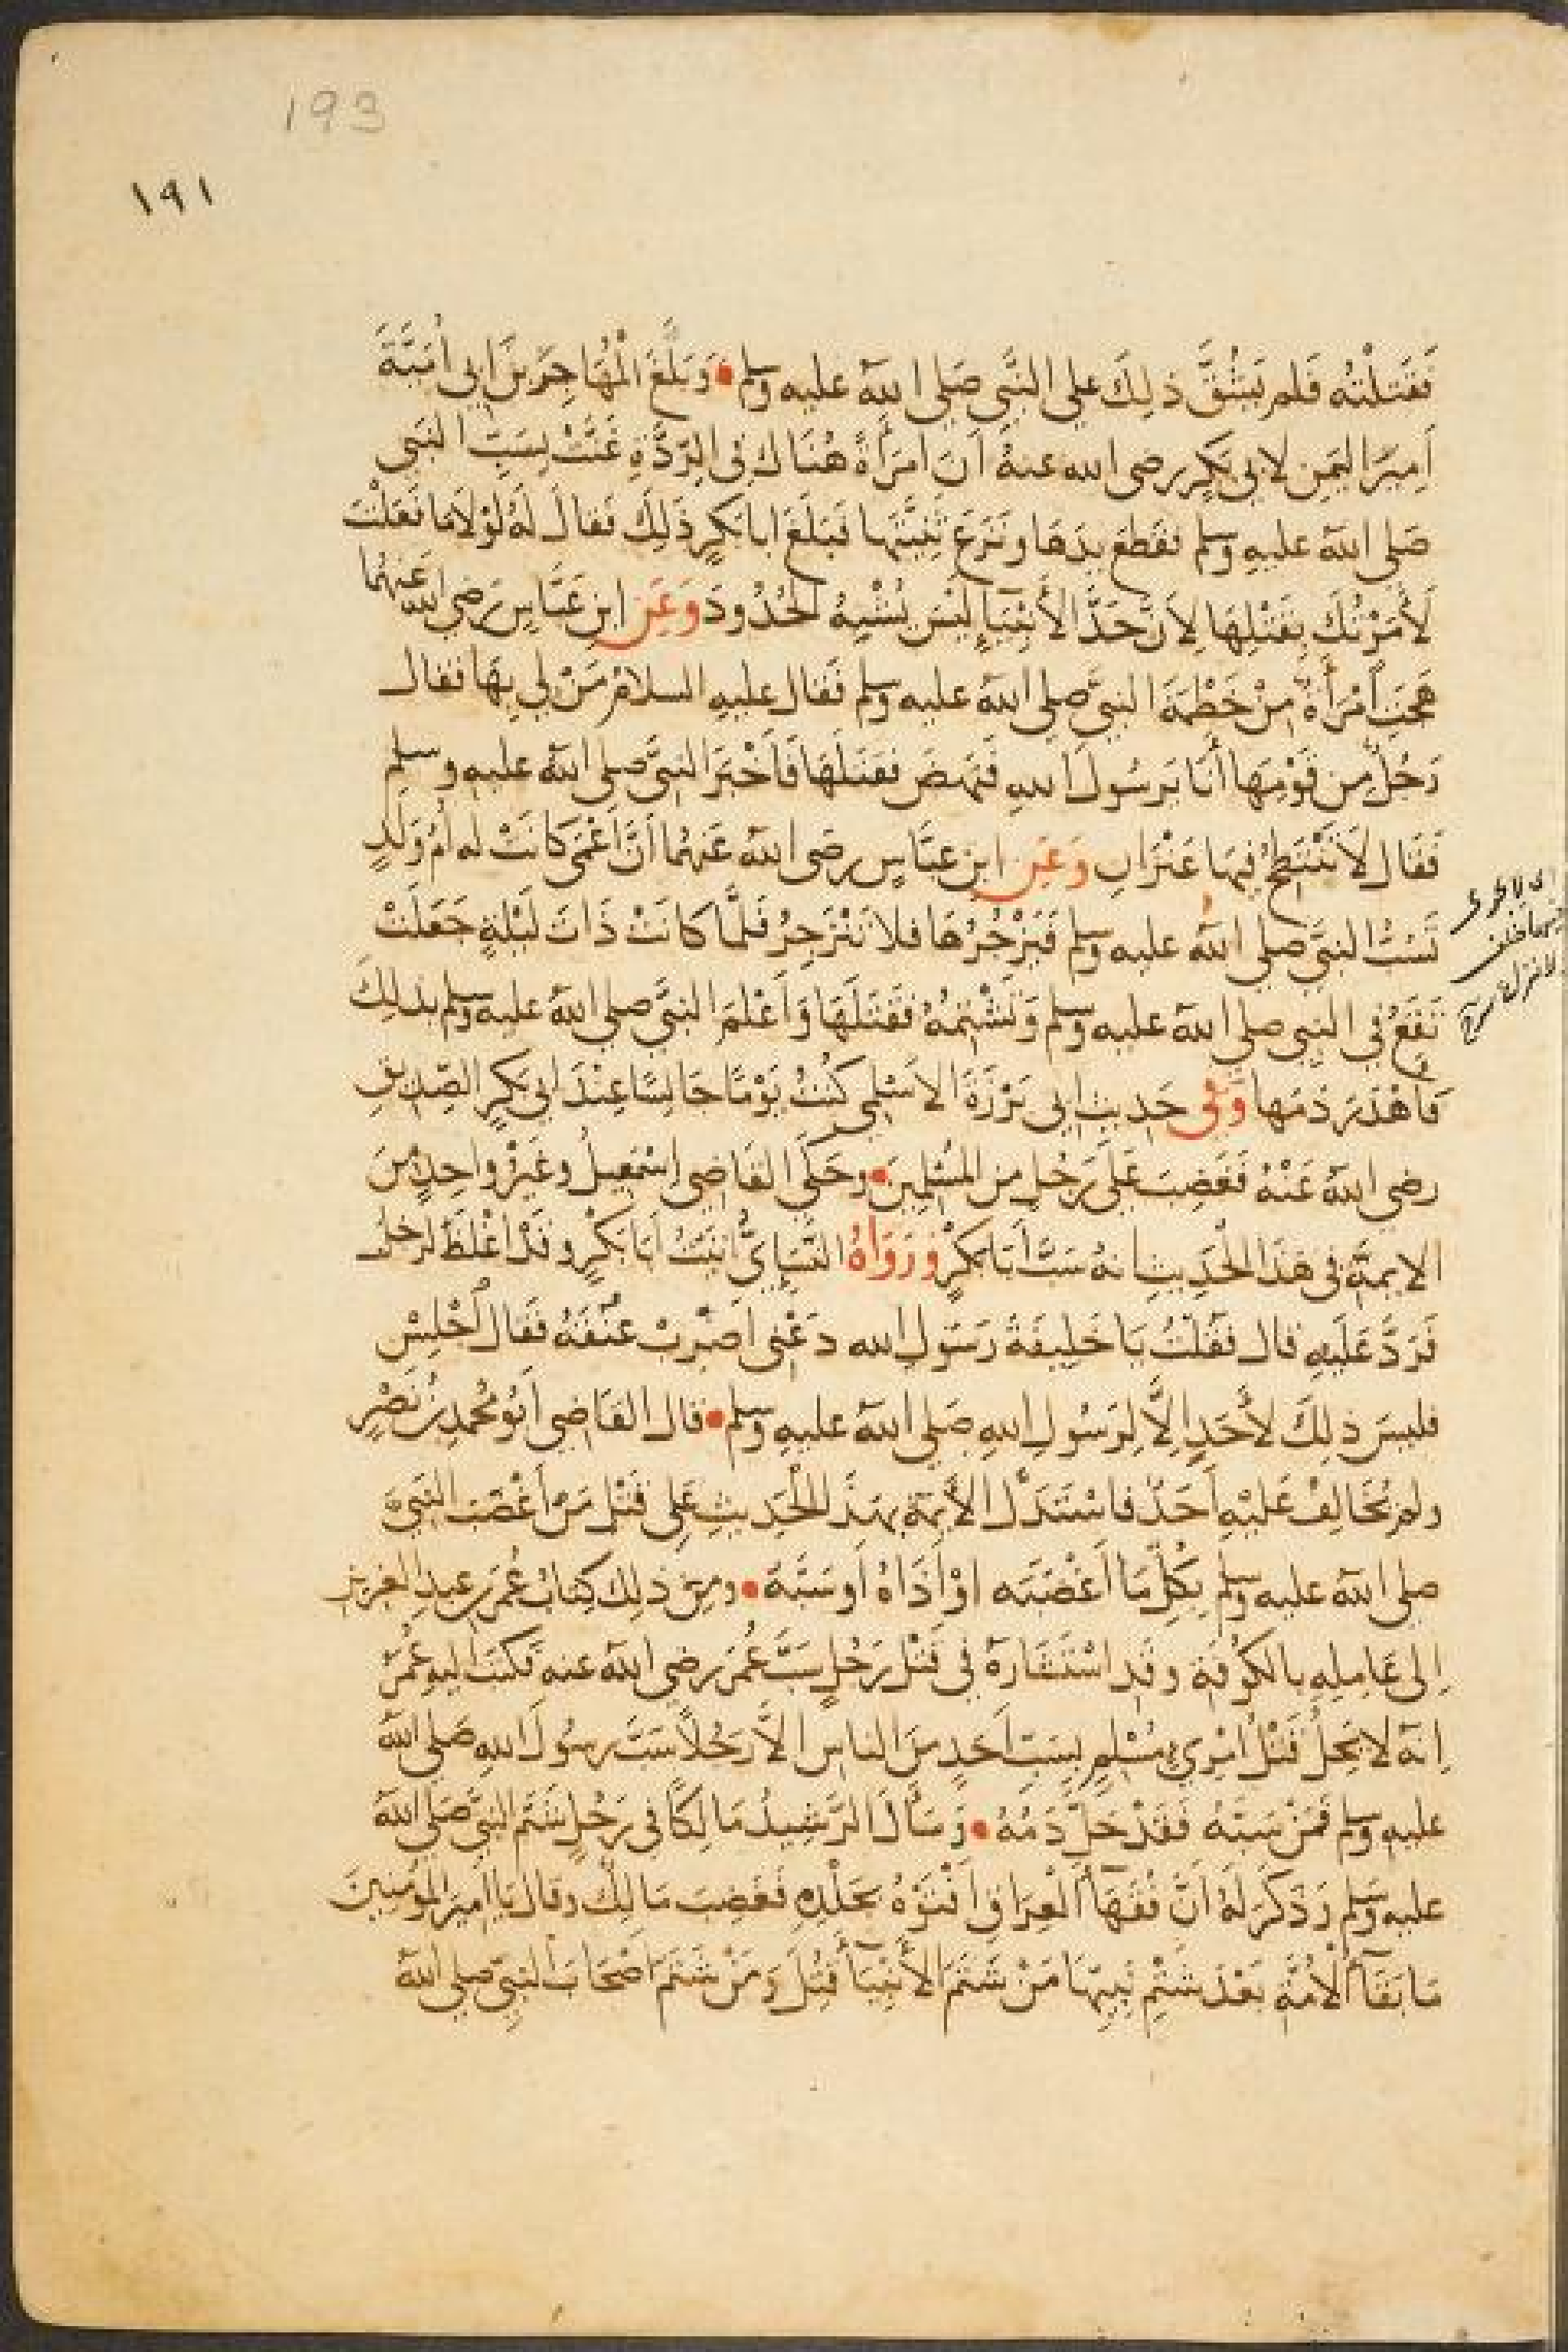 193
١٩١
فَقَتَلْتُه فَلم يَشُقَّ ذلِكَ على النَّبي صَلى الله عليه وسلم • وَبَلَغَ الْمُهَاجِرَ بنَ ابى أُمَيَّةَ
اَمِيرَ اليَمِنِ لابى بَكرٍ رضى الله عنهُ اَنَ امرَأَةً هُنَاك فى الرِّدَّةِ غَنَّتْ بِسَبِّ النبى
صَلى الله عليهِ وسلم فقَطعَ يدَهَا ونَزَعَ ثَنِيَّتَهَا فَبَلَغَ ابا بَكرٍ ذَلِكَ فَقالَ لَهُ لوْلاَ مَا فَعَلْتَ
لَأَمَرْتُكَ بِقَتْلِهَا لِاَنَّ حَدَّ الأَنبْيَاءِ ليْسَ يُشْبِهُ الحُدُودَ وَعَنِ ابنِ عَبَّاسٍ رَضِى الله عَنهُما
هَجَتِ اُمْرَأَةٌ مِنْ خَطْمَةَ النبىَّ صلى الله عليه وسلم فَقال عليهِ السلامُ مَنْ لِى بِهَا فقال
رَجُلٌ مِن قَوْمِهَا أَنَا يَرسُولَ اللهِ فَنَهضَ فقَتَلَهَا فَأَخْبَرَ النبىَّ صلى الله عليه وسلم
فَقَال لاَ يَنْتَطِحُ فِيهَا عَنْزَانِ وَعَنِ ابنِ عبَّاسٍ رضى الله عَنهُما اَنَّ أَعْمَى كانَتْ له اُمُّ وَلَدٍ
تَسُبُّ النبىَّ صلى اللهُ عليه وسلم فَيَزْجُرُهَا فلا تَنْزَجِرُ فَلمَّا كانَتْ ذَاتَ لَيْلةٍ جَعَلَتْ
تَقَعُ فى النبى صلى الله عليه وسلم وَتَشْتِمُهُ فَقَتَلَهَا وَأَعْلَمَ النبىَّ صلى الله عليه وسلم بذلِكَ
فَأَهْدَرَ دَمَها وَفى حَديثِ ابى بَرْزَةَ الاسْلَمِى كُنْتُ يَوْمًا جَالِسًا عِنْدَ ابى بَكرٍ الصِّدِيقِ
رضى الله عَنْهُ فَغَضِبَ عَلَى رَجُلٍ من المُسْلِمِينَ • وحَكَى القَاضِى اِسْمَعِيلُ وغَيْرُ واحِدٍ مِنَ
الايمةِ فى هَذَا الْحَدِيثِ انهُ سَبَّ أَبَا بَكرٍ وَرَوَاهُ النَّسَاىُّ اَتَيْتُ أَبَا بَكْرٍ وقَدْ اغْلظَ لِرَجُلٍ
فَرَدَّ عَلَيهِ قال فَقُلْتُ يَا خَلِيفَةَ رَسُولِ الله دَعْنِى اَضْرِبْ عُنُقَهُ فَقَال اُجْلِسْ
فليسَ ذلِكَ لأَحَدٍ اِلَّا لِرَسُولِ اللهِ صَلى الله عليه وسلم • قال القَاضِى أَبُو مُحَمدِ بنُ نَصْرٍ
ولم يُخَالِفْ عَليْهِ اَحَدٌ فاسْتَدَلَّ الأَيِمَّة بهَذَا الْحَدِيثِ عَلى قَتْلِ مَنْ أَغْضَبَ النبىَّ
صلى الله عليه وسلم بِكُلِّ مَا أَغْضَبَه اوْ أَذَاهُ اَو سَبَّهُ • ومِن ذلِكَ كِتابُ عُمَرَ بنِ عبدِ العَزيزِ
اِلى عَامِلِهِ بالكُوفَةِ وقَد اسْتَشَارَهُ فى قَتْلِ رَجُلٍ سَبَّ عُمَرَ رضى الله عنه فَكتَبَ اليهِ عُمَرُ
اِنَه لا يَحِلُّ قَتْلُ امْرِىءٍ مُسْلِمٍ بِسَبِّ اَحَدٍ مِنَ الناسِ الاَّ رَجُلاً سَبَّ رسُولَ اللهِ صَلى الله
عليهِ وسلم فَمَنْ سَبَّهُ فَقَدْ حَلَّ دَمُهُ • وَسَأَلَ الرَّشِيدُ مَالِكًا فى رَجُلٍ شَتَم النبىَّ صَلى الله
عليه وسلم وَذَكَرَ لَهُ اَنَّ فُقَهَآءَ الْعِرَاقِ اَفْتَوْهُ بجَلْدِهِ فَغَضِبَ مَالِكٌ وقَال يَا اَمِيرَ المُؤمِنينَ
مَا بَقَآءُ الْاُمَّةِ بَعْدَ شَتْمِ نَبِيِّهَا مَنْ شَتَمَ الأَنْبِيَآءَ قُتِلَ وَمَنْ شَتَمَ اَصْحَابَ النبِىِّ صلى الله